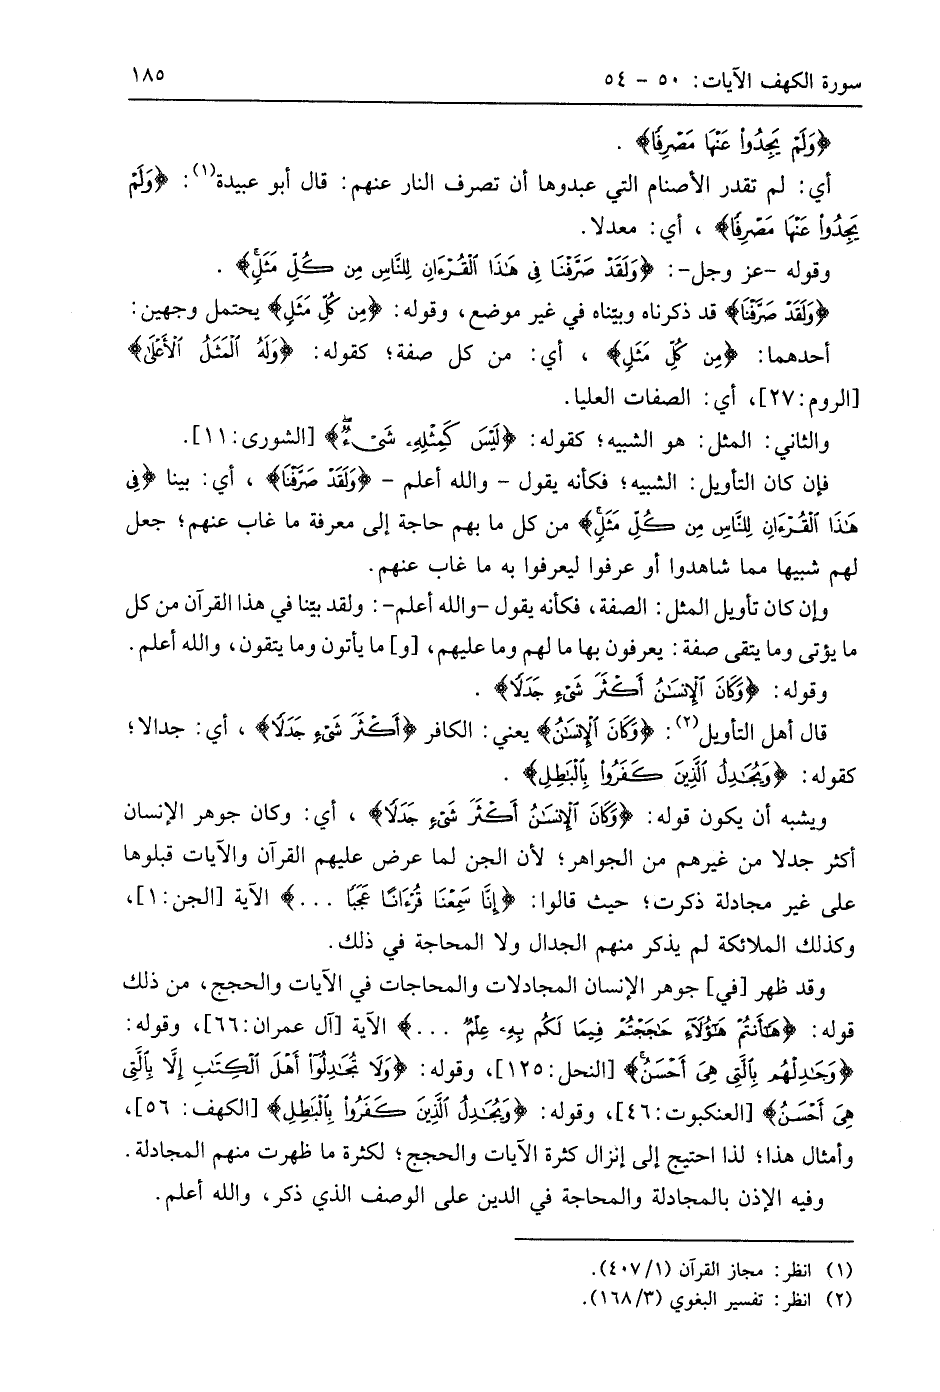 سورة الكهف الآيات: ٥٠ - ٥٤
١٨٥
﴿وَلَمْ يَجِدُوا۟ عَنْهَا مَصْرِفًا﴾ .
أي: لم تقدر الأصنام التي عبدوها أن تصرف النار عنهم: قال أبو عبيدة(١): ﴿وَلَمْ
يَجِدُوا۟ عَنْهَا مَصْرِفًا﴾ ، أي: معدلا.
وقوله -عز وجل-: ﴿وَلَقَدْ صَرَّفْنَا فِى هَٰذَا ٱلْقُرْءَانِ لِلنَّاسِ مِن كُلِّ مَثَلٍۚ﴾ .
﴿وَلَقَدْ صَرَّفْنَا﴾ قد ذكرناه وبيّناه في غير موضع، وقوله: ﴿مِن كُلِّ مَثَلٍ﴾ يحتمل وجهين:
أحدهما: ﴿مِن كُلِّ مَثَلٍ﴾ ، أي: من كل صفة؛ كقوله: ﴿وَلَهُ ٱلْمَثَلُ ٱلْأَعْلَىٰ﴾
[الروم:٢٧]، أي: الصفات العليا.
والثاني: المثل: هو الشبيه؛ كقوله: ﴿لَيْسَ كَمِثْلِهِۦ شَىْءٌۖ﴾ [الشورى:١١].
فإن كان التأويل: الشبيه؛ فكأنه يقول - والله أعلم - ﴿وَلَقَدْ صَرَّفْنَا﴾ ، أي: بينا ﴿فِى
هَٰذَا ٱلْقُرْءَانِ لِلنَّاسِ مِن كُلِّ مَثَلٍۚ﴾ من كل ما بهم حاجة إلى معرفة ما غاب عنهم؛ جعل
لهم شبيها مما شاهدوا أو عرفوا ليعرفوا به ما غاب عنهم.
وإن كان تأويل المثل: الصفة، فكأنه يقول -والله أعلم-: ولقد بيّنا في هذا القرآن من كل
ما يؤتى وما يتقى صفة: يعرفون بها ما لهم وما عليهم، [و] ما يأتون وما يتقون، والله أعلم.
وقوله: ﴿وَكَانَ ٱلْإِنسَٰنُ أَكْثَرَ شَىْءٍ جَدَلًا﴾ .
قال أهل التأويل(٢): ﴿وَكَانَ ٱلْإِنسَٰنُ﴾ يعني: الكافر ﴿أَكْثَرَ شَىْءٍ جَدَلًا﴾ ، أي: جدالا؛
كقوله: ﴿وَيُجَٰدِلُ ٱلَّذِينَ كَفَرُوا۟ بِٱلْبَٰطِلِ﴾ .
ويشبه أن يكون قوله: ﴿وَكَانَ ٱلْإِنسَٰنُ أَكْثَرَ شَىْءٍ جَدَلًا﴾ ، أي: وكان جوهر الإنسان
أكثر جدلا من غيرهم من الجواهر؛ لأن الجن لما عرض عليهم القرآن والآيات قبلوها
على غير مجادلة ذكرت؛ حيث قالوا: ﴿إِنَّا سَمِعْنَا قُرْءَانًا عَجَبًا ...﴾ الآية [الجن:١]،
وكذلك الملائكة لم يذكر منهم الجدال ولا المحاجة في ذلك.
وقد ظهر [في] جوهر الإنسان المجادلات والمحاجات في الآيات والحجج، من ذلك
قوله: ﴿هَٰٓأَنتُمْ هَٰٓؤُلَآءِ حَٰجَجْتُمْ فِيمَا لَكُم بِهِۦ عِلْمٌ ...﴾ الآية [آل عمران:٦٦]، وقوله:
﴿وَجَٰدِلْهُم بِٱلَّتِى هِىَ أَحْسَنُۚ﴾ [النحل:١٢٥]، وقوله: ﴿وَلَا تُجَٰدِلُوٓا۟ أَهْلَ ٱلْكِتَٰبِ إِلَّا بِٱلَّتِى
هِىَ أَحْسَنُ﴾ [العنكبوت:٤٦]، وقوله: ﴿وَيُجَٰدِلُ ٱلَّذِينَ كَفَرُوا۟ بِٱلْبَٰطِلِ﴾ [الكهف: ٥٦]،
وأمثال هذا؛ لذا احتيج إلى إنزال كثرة الآيات والحجج؛ لكثرة ما ظهرت منهم المجادلة.
وفيه الإذن بالمجادلة والمحاجة في الدين على الوصف الذي ذكر، والله أعلم.
(١) انظر: مجاز القرآن (٤٠٧/١).
(٢) انظر: تفسير البغوي (١٦٨/٣).